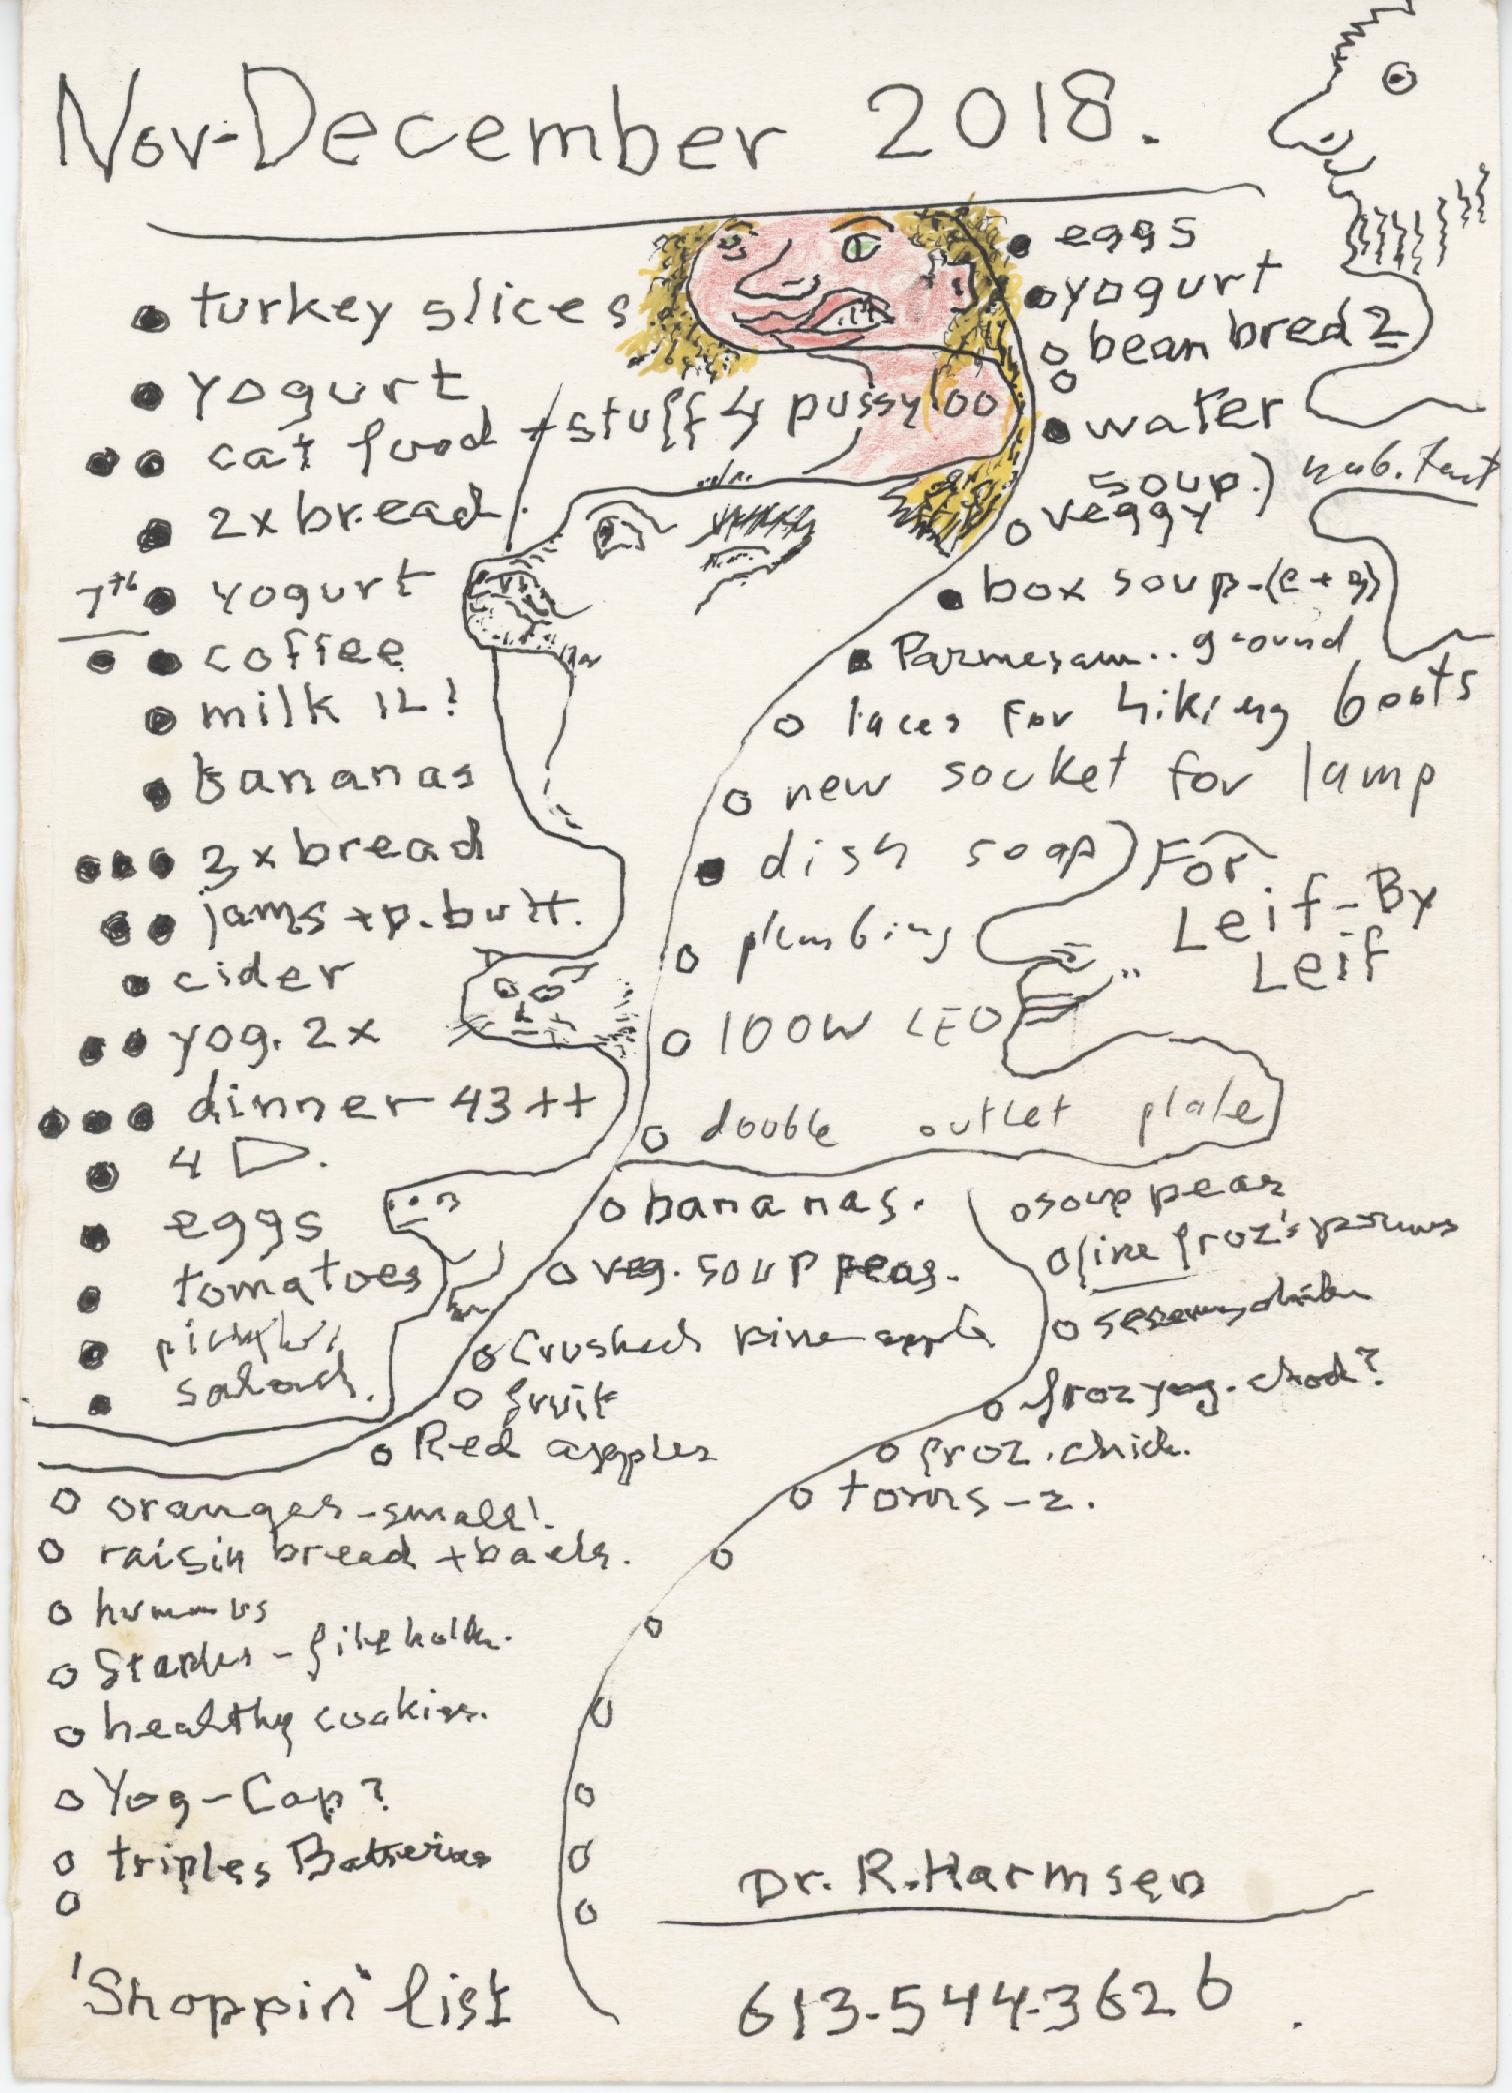 Nov-December 2018.
turkey slices
yogurt
cat food + stuff 4 pussy oo
2x bread.
7th yogurt
coffee
milk 1L!
bananas
3x bread
jams + p. butt.
cider
yog. 2x
dinner 43++
4
eggs
tomatoes
salad.
eggs
yogurt
bean bred 2
water
soup.)
veggy
box soup-(e+g)
Parmesam.. ground
laces for hiking boots
new socket for lamp
dish soap) For
Leif-By
Leif
plumbing
100W LED
double outlet plate
bananas.
veg. soup peas.
Crushed pineapple
fruit
Red apples
soup peas
fine froz's
froz yog. chod?
froz. chick.
toms-2.
oranges-small!.
raisin bread +
hummus
Staples -
healthy cookies.
Yog-Cap?
triples Batteries
'Shoppin' list
Dr. R. Harmsen
613-544-3626.